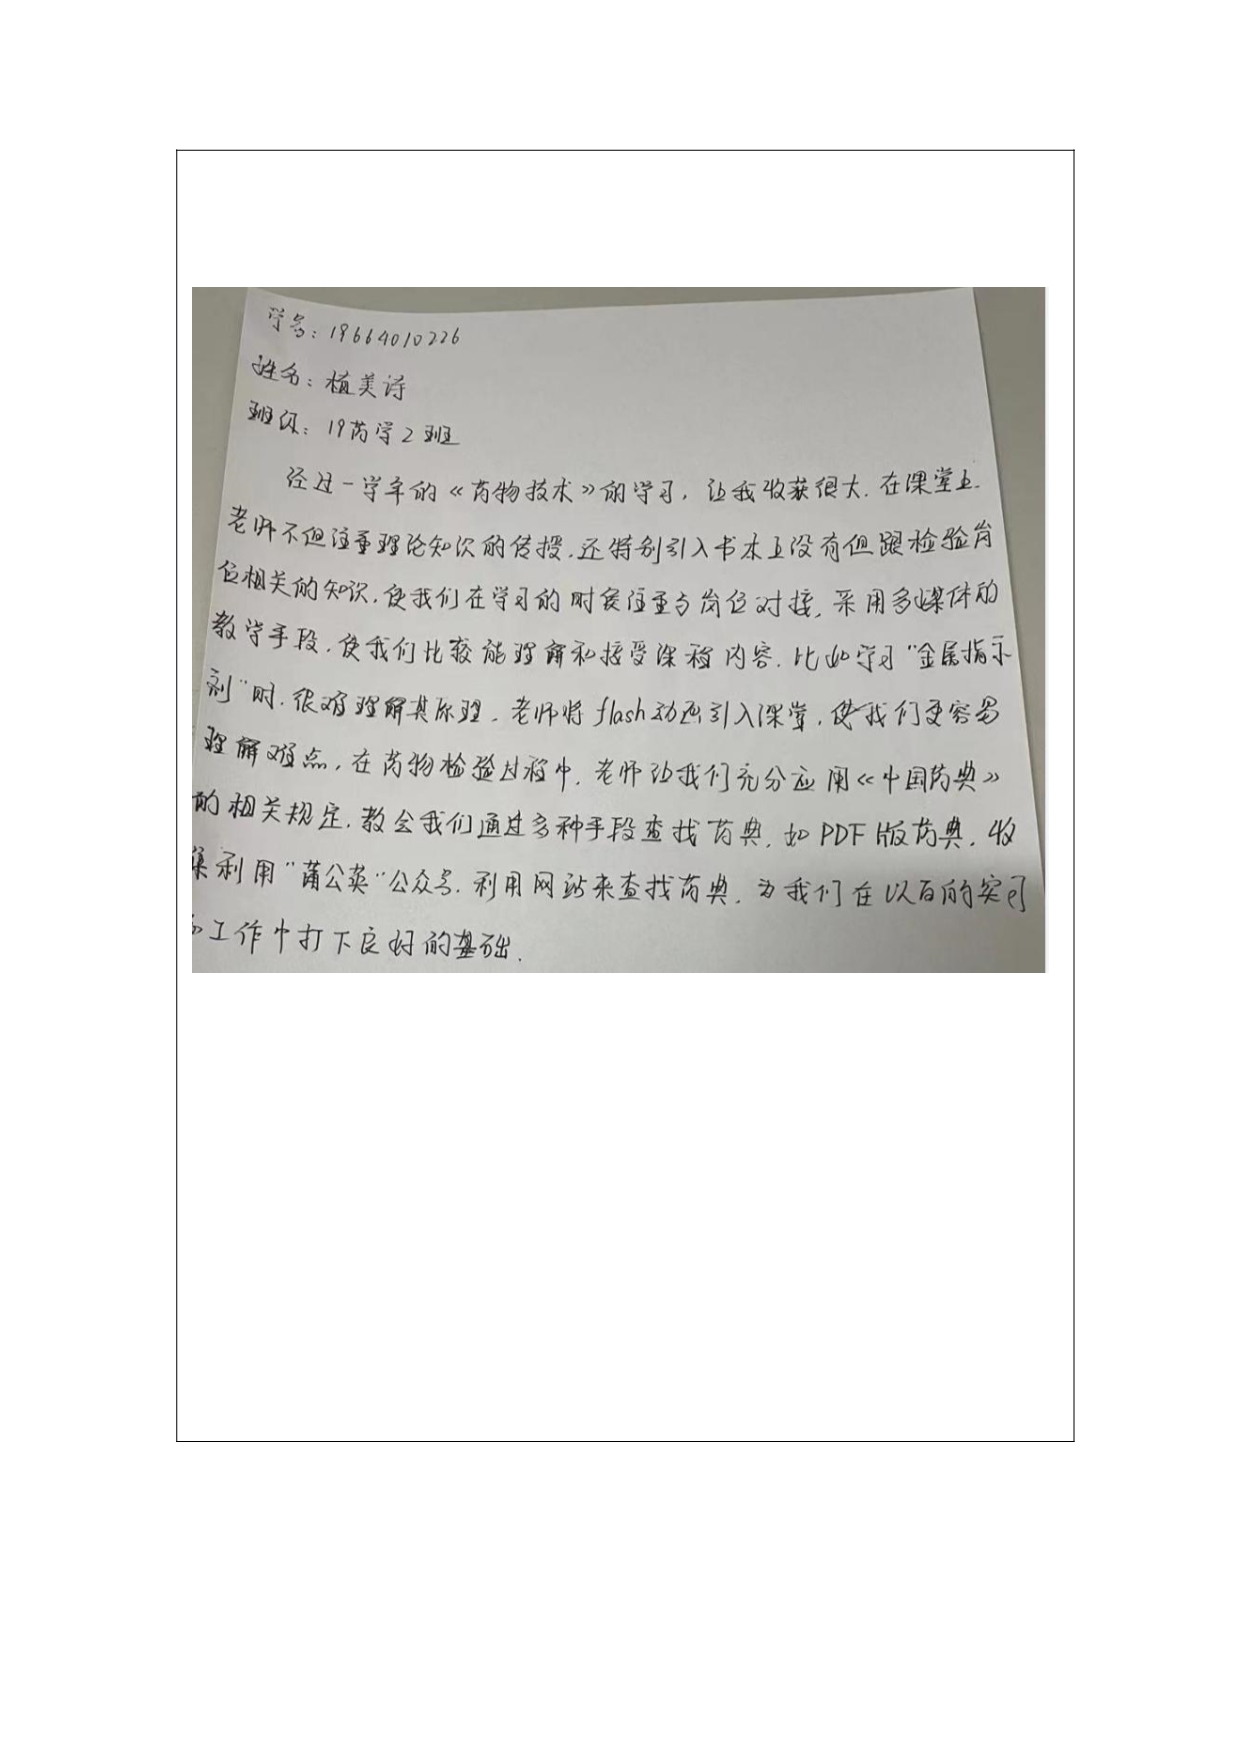 学号：19664010226
姓名：植美诗
班级：19药学2班
经过一学年的《药物技术》的学习，让我收获很大.在课堂上.
老师不但注重理论知识的传授.还特别引入书本上没有但跟检验岗
位相关的知识.使我们在学习的时候注重与岗位对接.采用多媒体的
教学手段.使我们比较能理解和接受课程内容.比如学习“金属指示
剂”时.很难理解其原理.老师将flash动画引入课堂.使我们更容易
理解难点.在药物检验过程中.老师让我们充分应用《中国药典》
的相关规定.教会我们通过多种手段查找药典.如PDF版药典.收
集利用“蒲公英”公众号.利用网站来查找药典.为我们在以后的实习
工作中打下良好的基础.